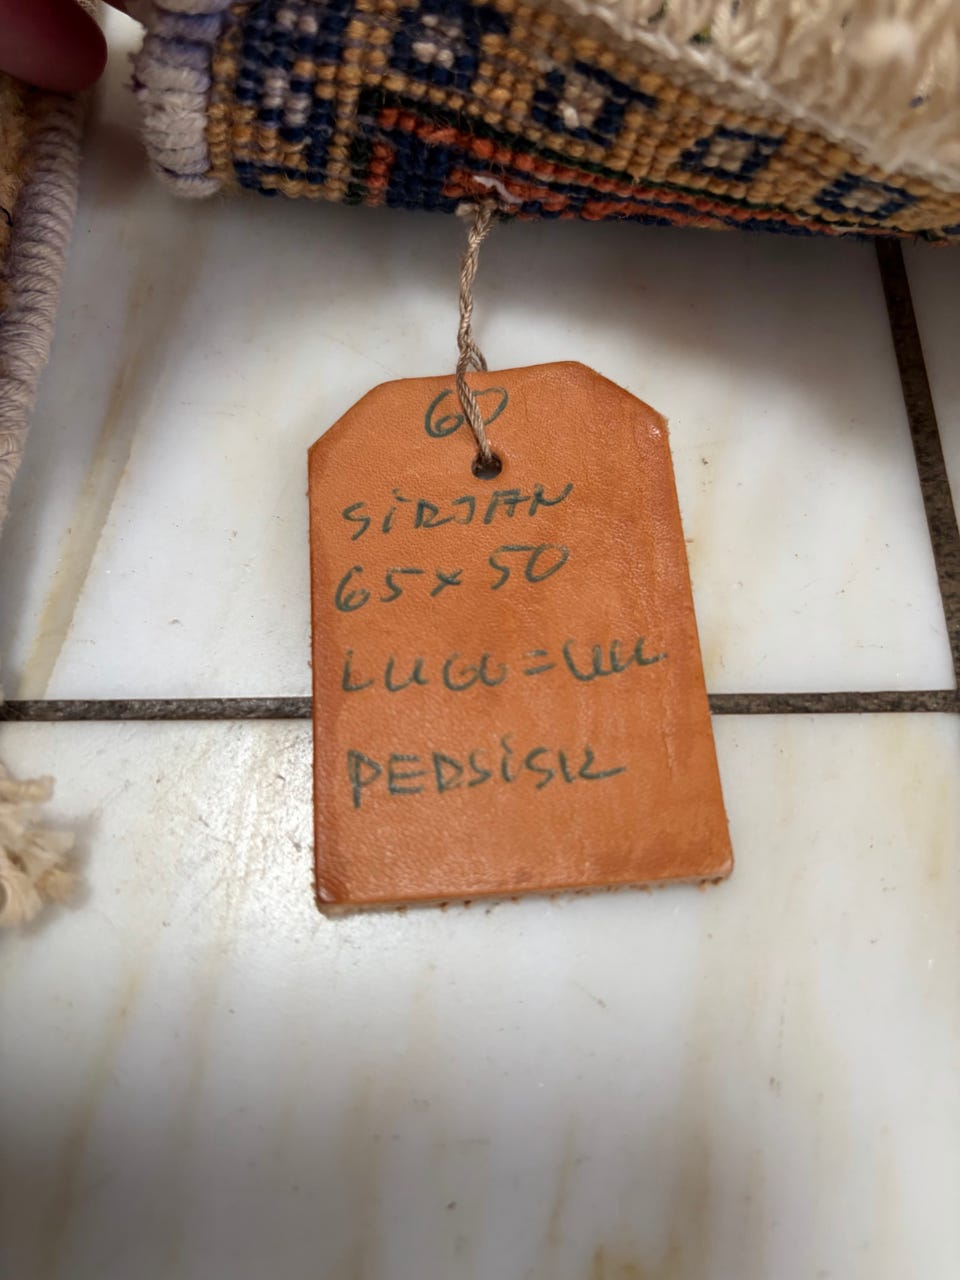 60
SiRJAN
65x50
LUGG = ULL
PERSiSK